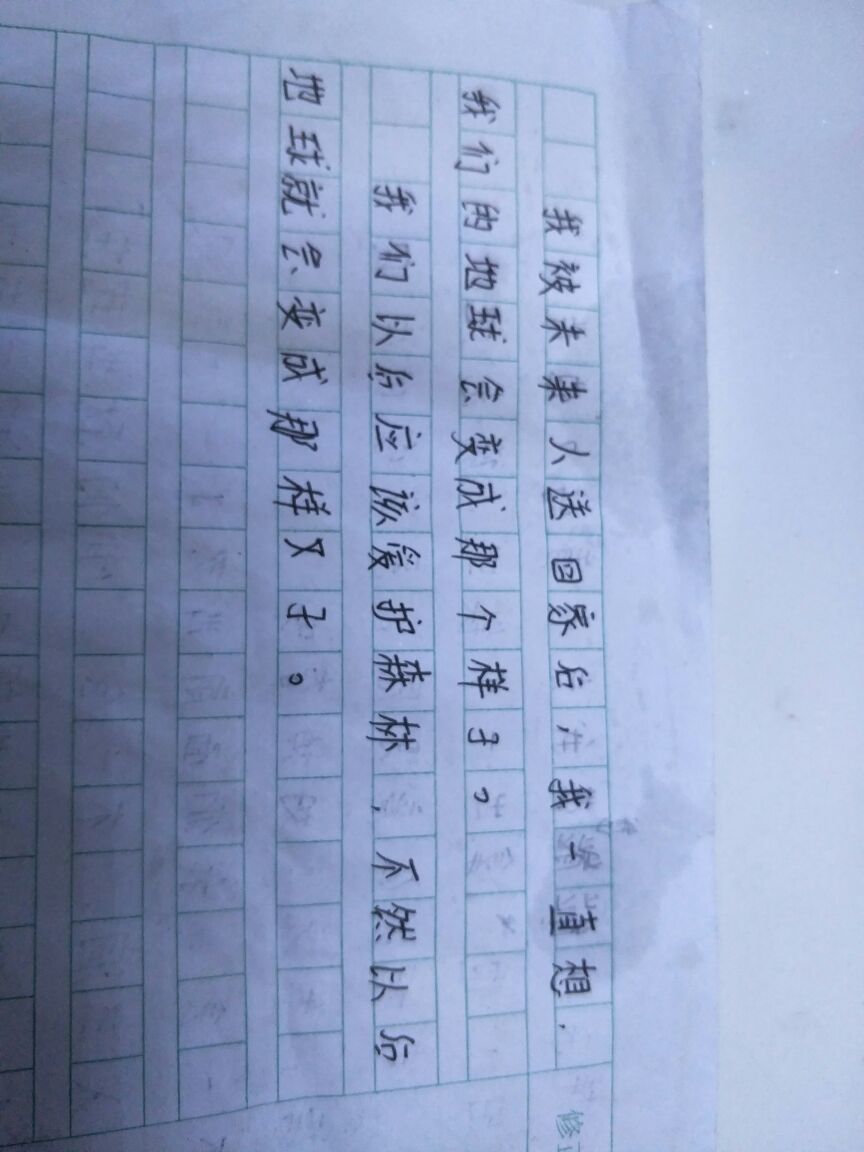 我被未来人送回家后，我一直想，
我们的地球会变成那个样子。
我们以后应该爱护森林，不然以后
地球就会变成那样又子。
修